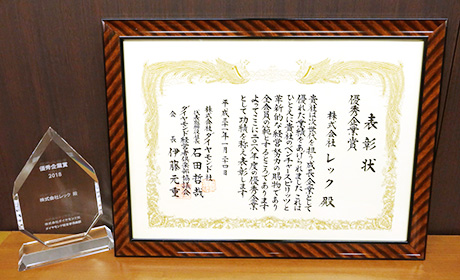 表彰状
優秀企業賞
株式会社 レック 殿
貴社は次世代を担う成長企業として
優れた業績をあげられました これは
ひとえに貴社のベンチャースピリッツと
革新的な経営努力の賜物であり
全会員の範とするところであります
よってここに二〇一八年度の優秀企業
として功績を称え表彰します
平成
株式会社ダイヤモンド社
石田哲哉
ダイヤモンド経営者倶楽部協議会
会長 伊藤元重
優秀企業賞
2018
株式会社レック 殿
株式会社ダイヤモンド社